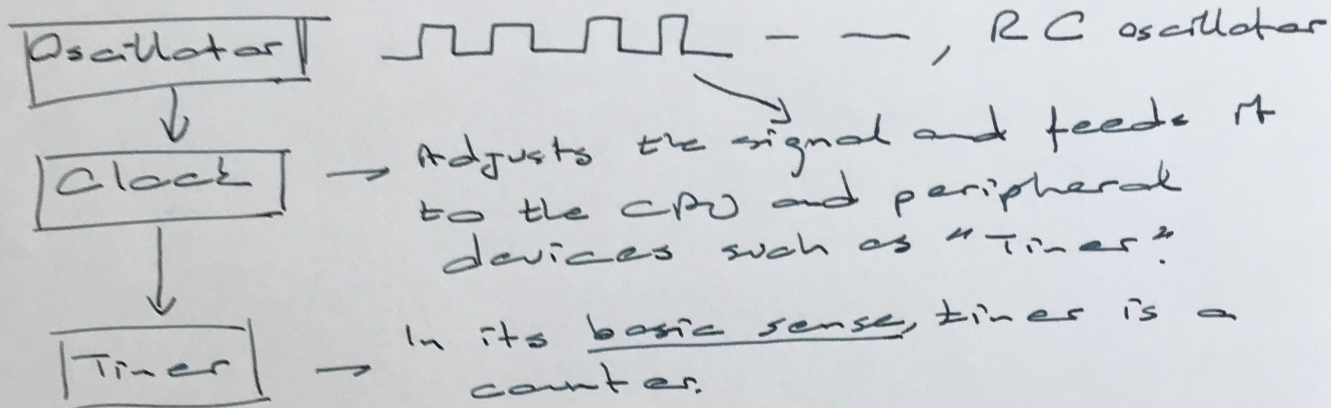 Oscillator — —, RC oscillator
Clock → Adjusts the signal and feeds it
to the CPU and peripheral
devices such as "Timer".
Timer → In its basic sense, timer is a
counter.